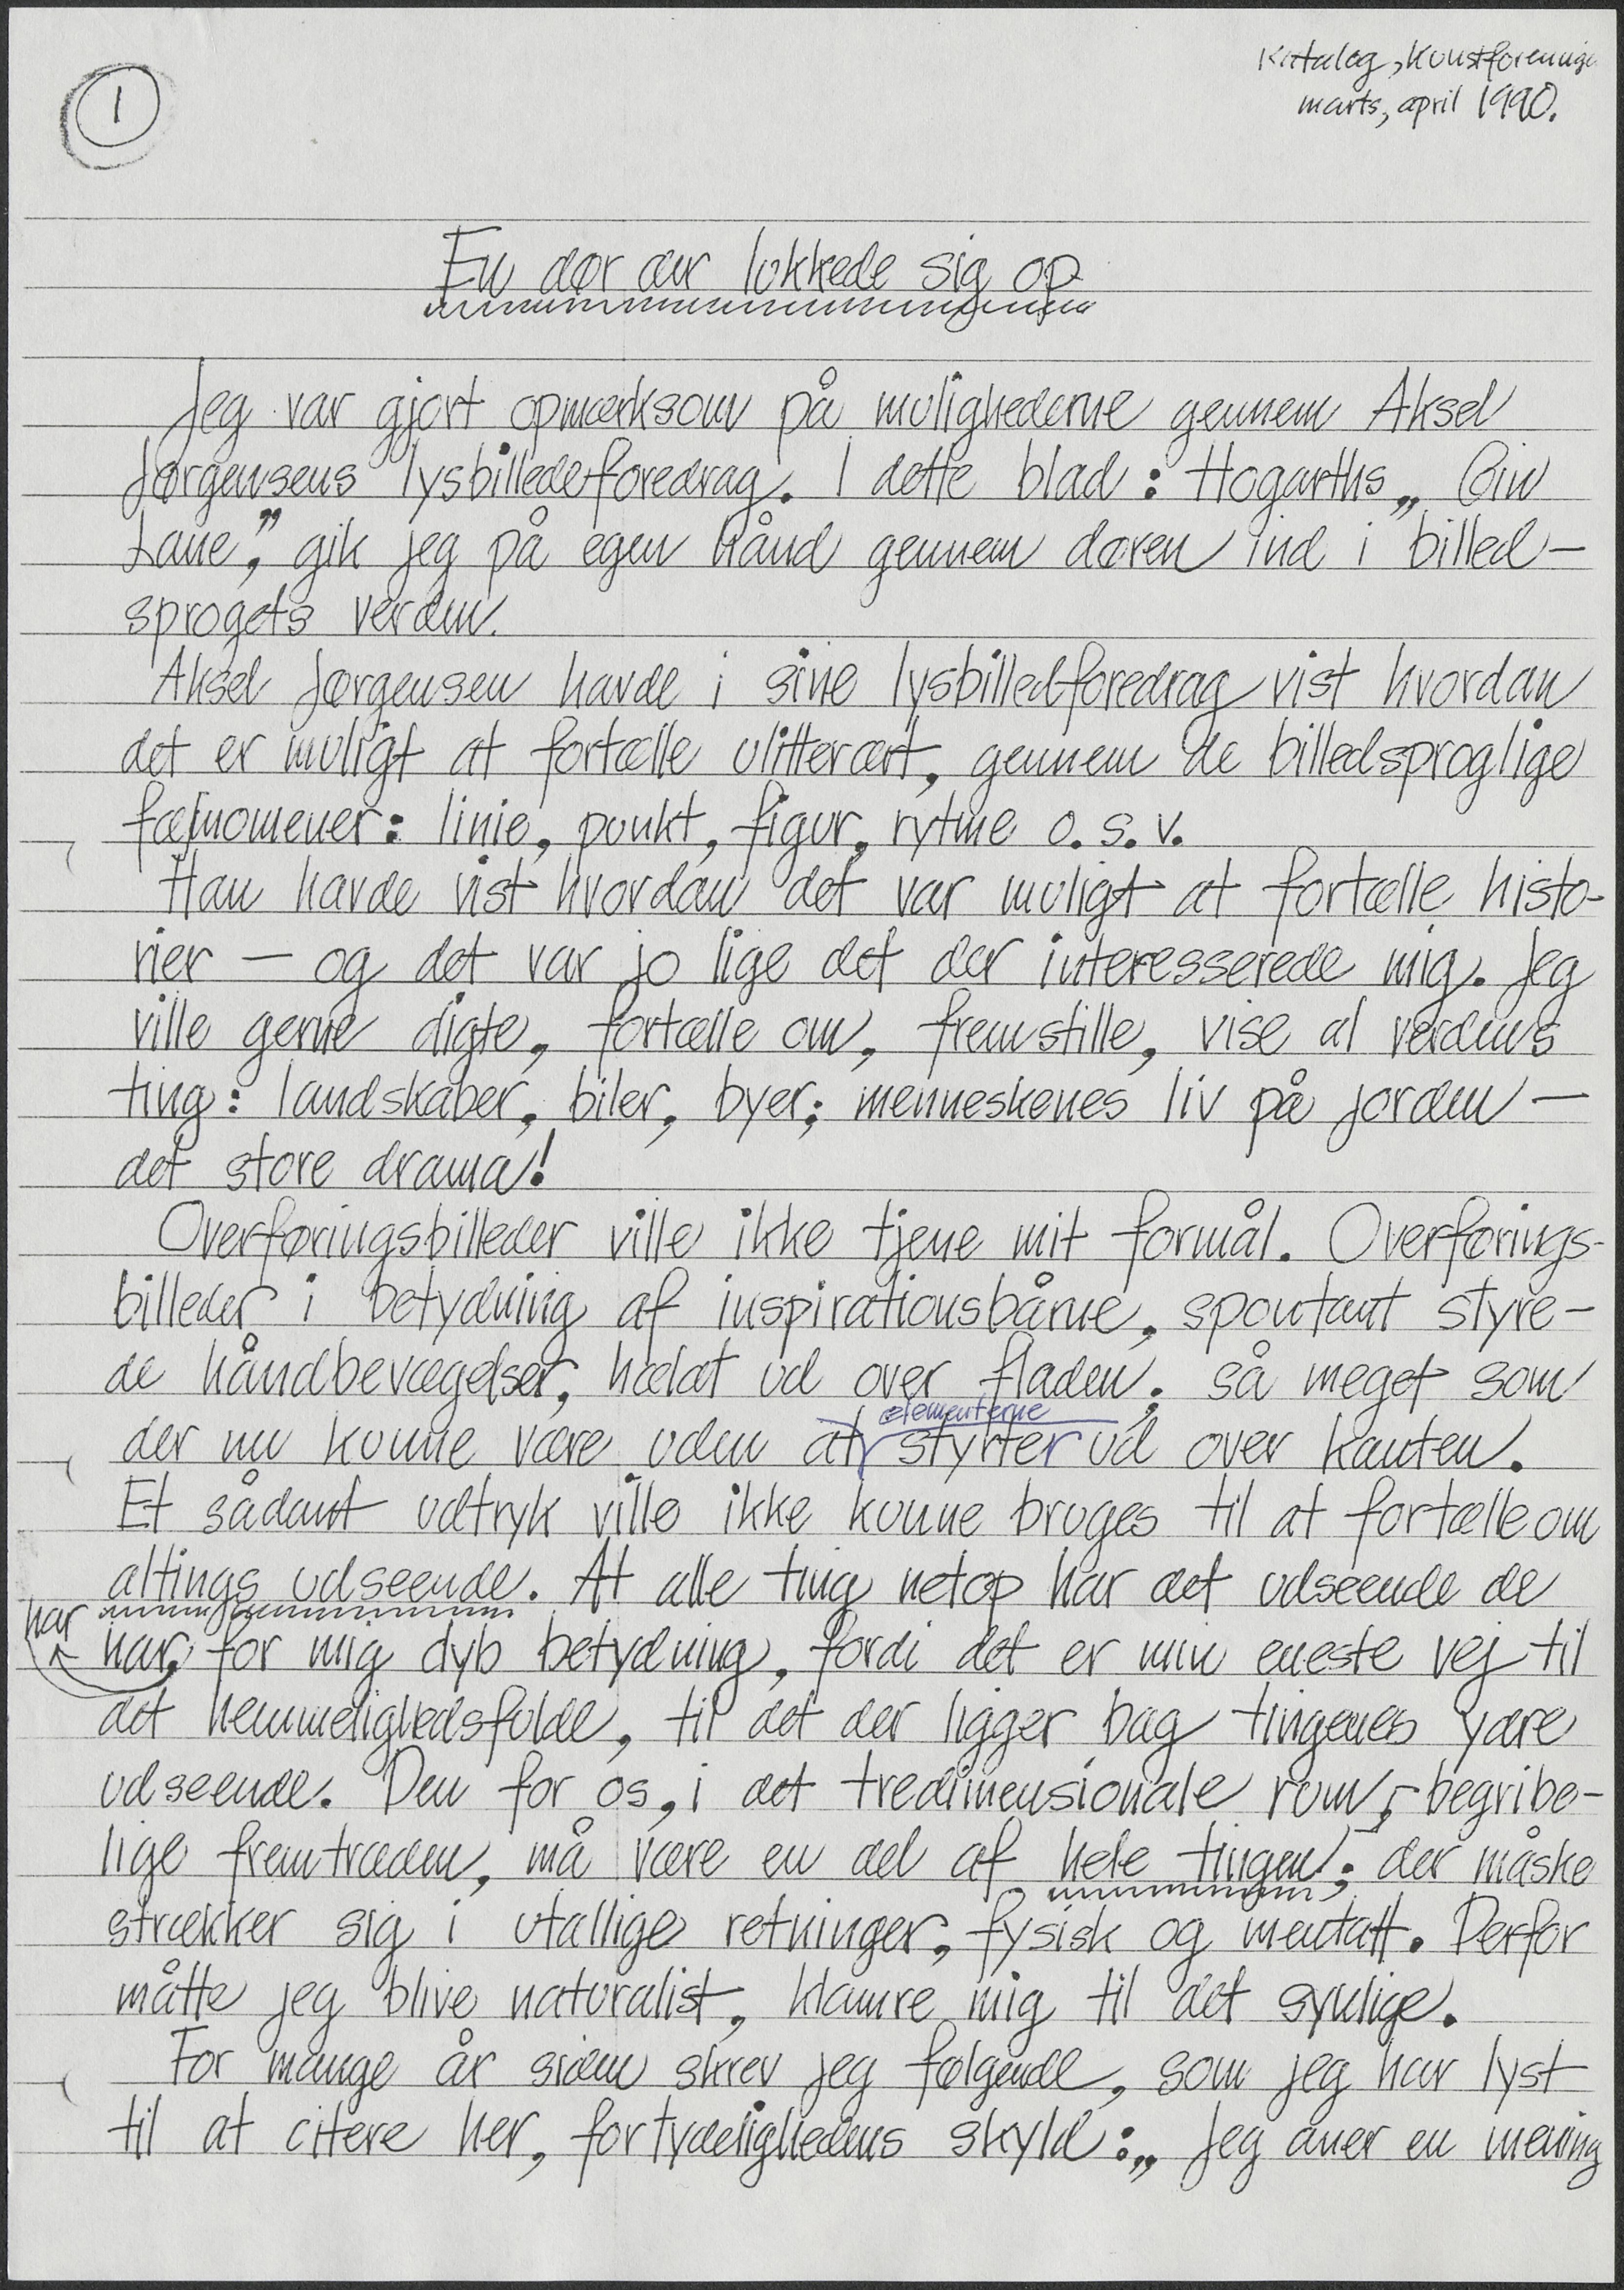 1
Katalog, Kunstforening
marts, april 1990.
En dør der lukkede sig op
Jeg var gjort opmærksom på mulighederne gennem Aksel
Jørgensens lysbilledeforedrag. I dette blad: Hogarths „Gin
Lane”, gik jeg på egen hånd gennem døren ind i billed-
sprogets verden.
Aksel Jørgensen havde i sine lysbilledforedrag vist hvordan
det er muligt at fortælle ulitterært, gennem de billedsproglige
fænomener: linie, punkt, figur, rytme o.s.v.
Han havde vist hvordan det var muligt at fortælle histo-
rier — og det var jo lige det der interesserede mig. Jeg
ville gerne digte, fortælle om, fremstille, vise al verdens
ting: landskaber, biler, byer; menneskenes liv på jorden —
det store drama!
Overføringsbilleder ville ikke tjene mit formål. Overførings-
billeder i betydning af inspirationsbårne, spontant styre-
de håndbevægelser, hældt ud over fladen; så meget som
elementerne
der nu kunne være uden at styrter ud over kanten.
Et sådant udtryk ville ikke kunne bruges til at fortælle om
altings udseende. At alle ting netop har det udseende de
har
har, for mig dyb betydning, fordi det er min eneste vej til
det hemmelighedsfulde, til det der ligger bag tingenes ydre
udseende. Den for os, i det tredimensionale rum, begribe-
lige fremtræden, må være en del af hele tingen; der måske
strækker sig i utallige retninger, fysisk og mentalt. Derfor
måtte jeg blive naturalist, klamre mig til det synlige.
For mange år siden skrev jeg følgende, som jeg har lyst
til at citere her, for tydelighedens skyld: „Jeg aner en mening